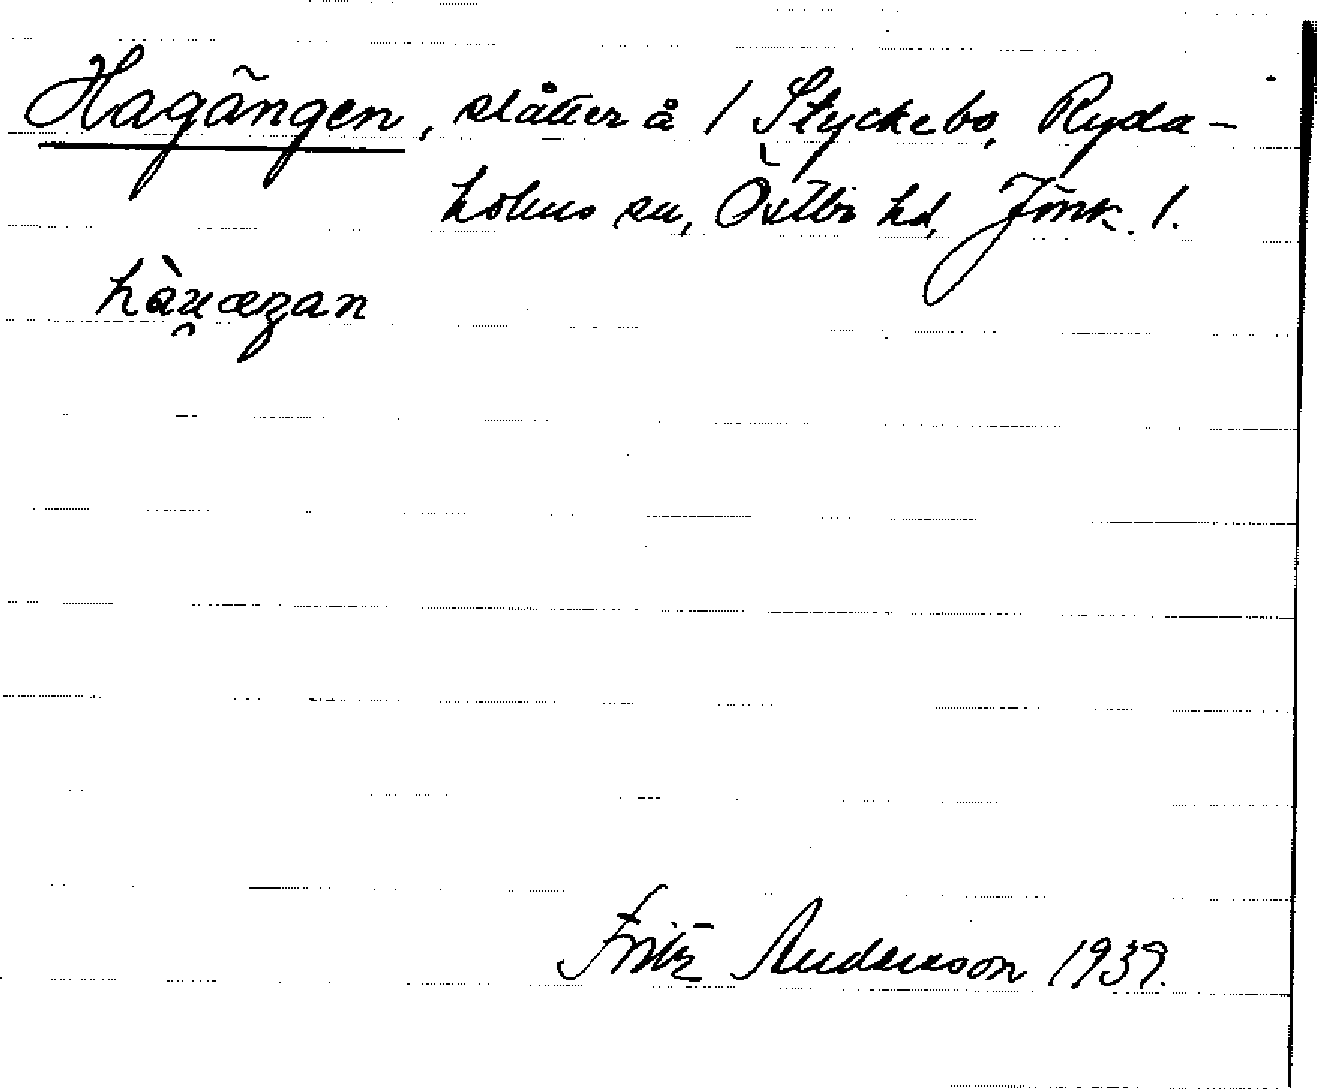 Hagängen, slåtter å 1 Styckebo, Ryda-
holms sn, Östbo hd, Jönk. l.
Fritz Andersson 1939.